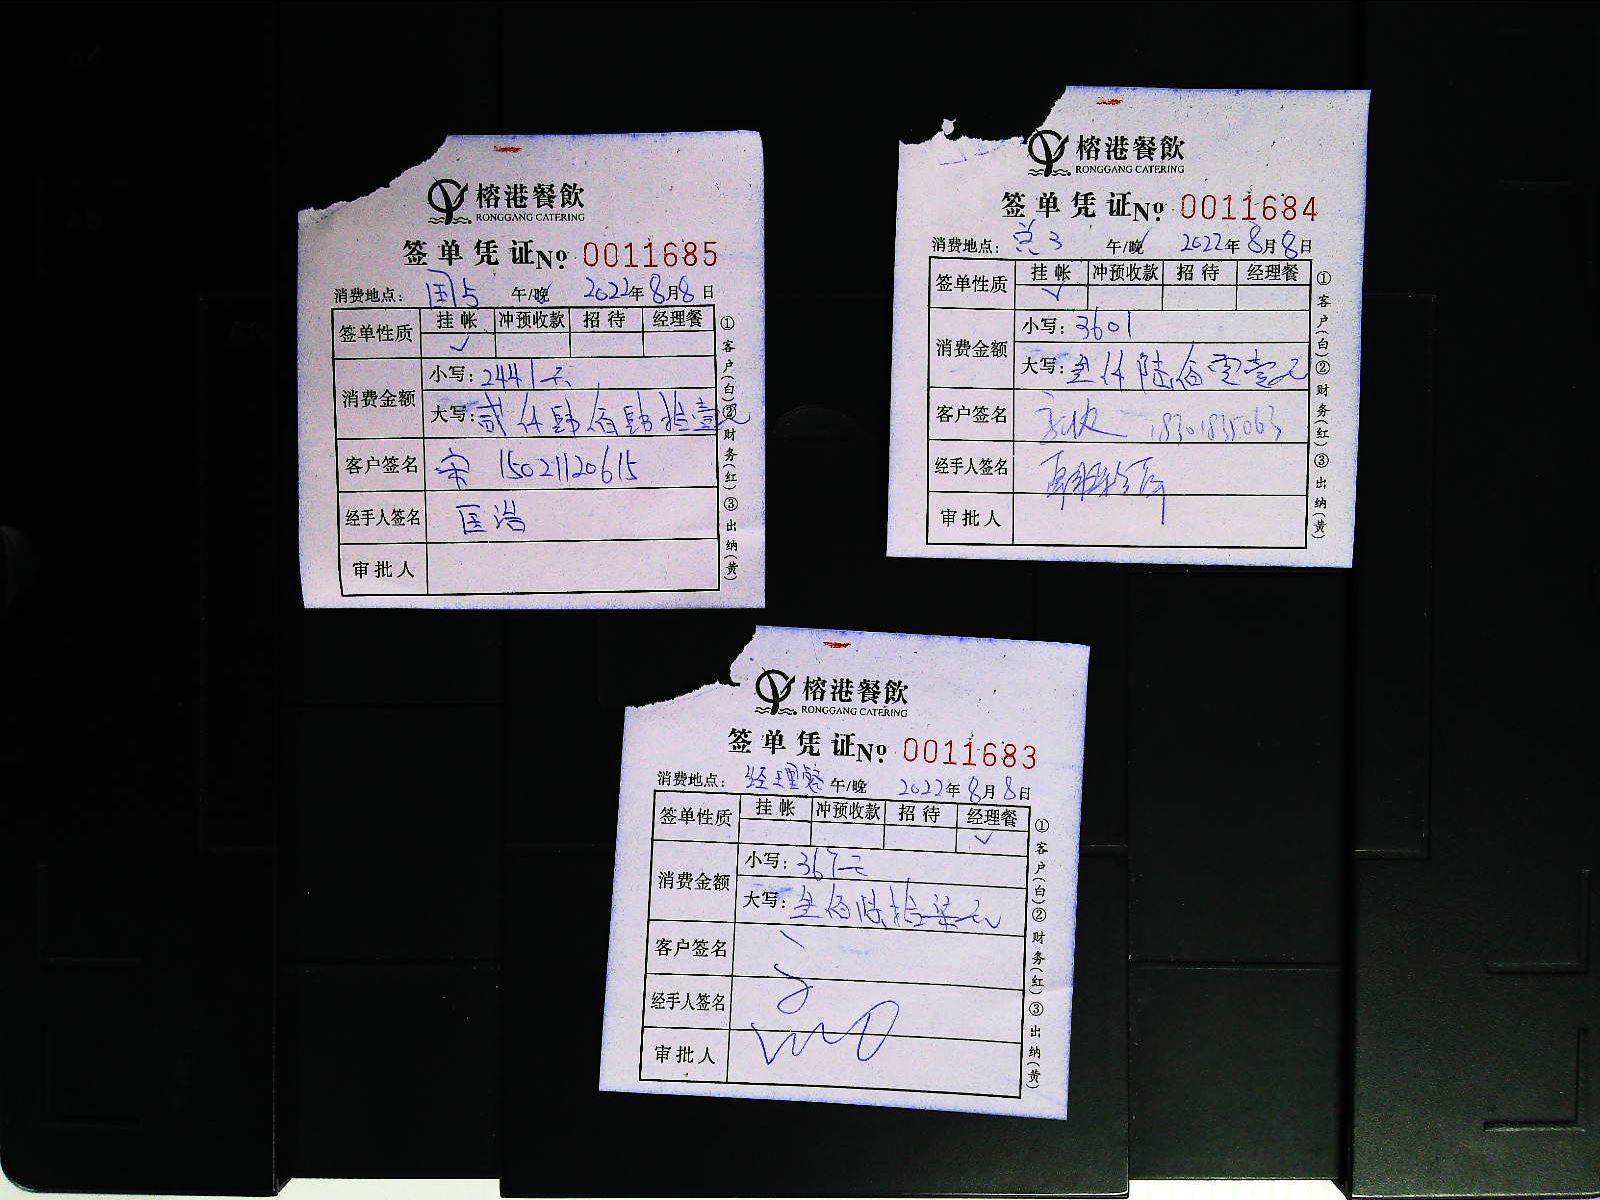 榕港餐飲
RONGGANG CATERING
签单凭证 No. 0011685
消费地点: 国5 午/晚 2022年8月8日
签单性质 挂帐 冲预收款 招待 经理餐
✓
消费金额 小写: 2441元
大写: 贰仟肆佰肆拾壹元
客户签名 宋 15021120615
经手人签名 匡浩
审批人
①客户(白)②财务(红)③出纳(黄)
榕港餐飲
RONGGANG CATERING
签单凭证 No. 0011684
消费地点: 午/晚 2022年8月8日
签单性质 挂帐 冲预收款 招待 经理餐
✓
消费金额 小写: 3601
大写: 叁仟陆佰零壹元
客户签名 18301835063
经手人签名
审批人
①客户(白)②财务(红)③出纳(黄)
榕港餐飲
RONGGANG CATERING
签单凭证 No. 0011683
消费地点: 经理餐 午/晚 2022年8月8日
签单性质 挂帐 冲预收款 招待 经理餐
✓
消费金额 小写: 367元
大写: 叁佰陆拾柒元
客户签名
经手人签名
审批人
①客户(白)②财务(红)③出纳(黄)